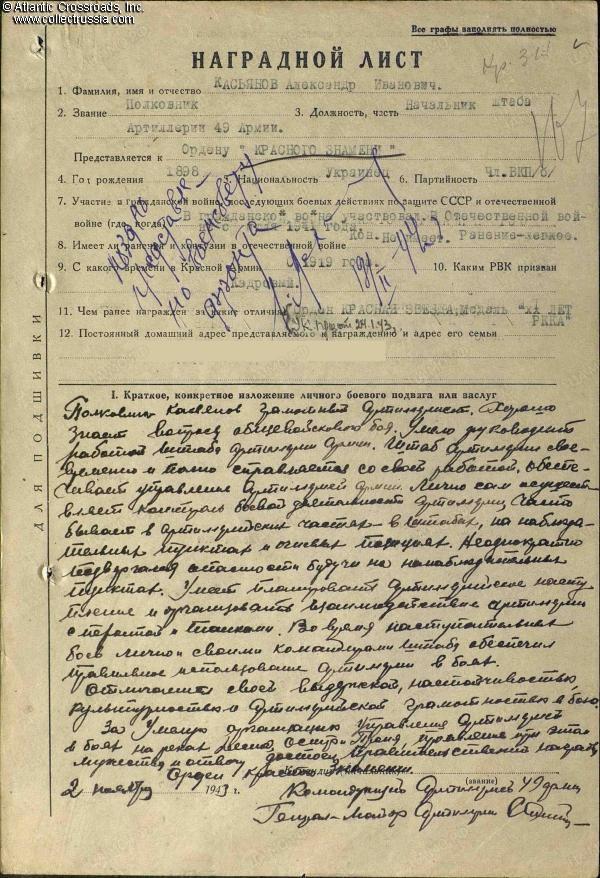 © Atlantic Crossroads, Inc.
www.collectrussia.com
Все графы заполнять полностью
НАГРАДНОЙ ЛИСТ
1. Фамилия, имя и отчество КАСЬЯНОВ Александр Иванович.
2. Звание Полковник 3. Должность, часть Начальник штаба
Артиллерии 49 Армии.
Представляется к Ордену "КРАСНОГО ЗНАМЕНИ"
4. Год рождения 1898 5. Национальность Украинец 6. Партийность Чл.ВКП/б/
7. Участие в гражданской войне, последующих боевых действиях по защите СССР и отечественной
войне (где, когда) В Гражданской войне участвовал. В Отечественной вой-
не с 1941 года.
8. Имеет ли ранения и контузии в отечественной войне Ранение-легкое.
9. С какого времени в Красной Армии С 1919 года. 10. Каким РВК призван
Кадровый.
11. Чем ранее награжден за какие отличия Орден КРАСНАЯ ЗВЕЗДА, Медаль "XX ЛЕТ
РККА"
24.1.43
12. Постоянный домашний адрес представляемого к награждению и адрес его семьи
ДЛЯ ПОДШИВКИ
I. Краткое, конкретное изложение личного боевого подвига или заслуг
Полковник Касьянов грамотный артиллерист. Хорошо
знает вопросы общевойскового боя. Умело руководит
работой штаба артиллерии Армии. Штаб артиллерии свое-
временно и полно справляется со своей работой, обеспе-
чивает управление артиллерией армии. Лично сам осущест-
вляет контроль боевой деятельности артиллерии, часто
бывает в артиллерийских частях - в штабах, на наблюда-
тельных пунктах и огневых позициях. Неоднократно
подвергался опасности будучи на наблюдательных
пунктах. Умеет планировать артиллерийское насту-
пление и организовать взаимодействие артиллерии
с пехотой и танками. Во время наступательных
боев лично и своими командирами штаба обеспечил
правильное использование артиллерии в боях.
Отличается своей выдержкой, настойчивостью
культурностью и артиллерийской грамотностью в бою.
За умелую организацию управления артиллерией
в боях на реках Десна, Сож и Проня проявление при этом
мужество и отвагу достоин Правительственной награды
Орден Красное Знамени.
2 ноября 1943 г.
(звание)
Командующий Артиллерией 49 армии
Генерал-Майор Артиллерии